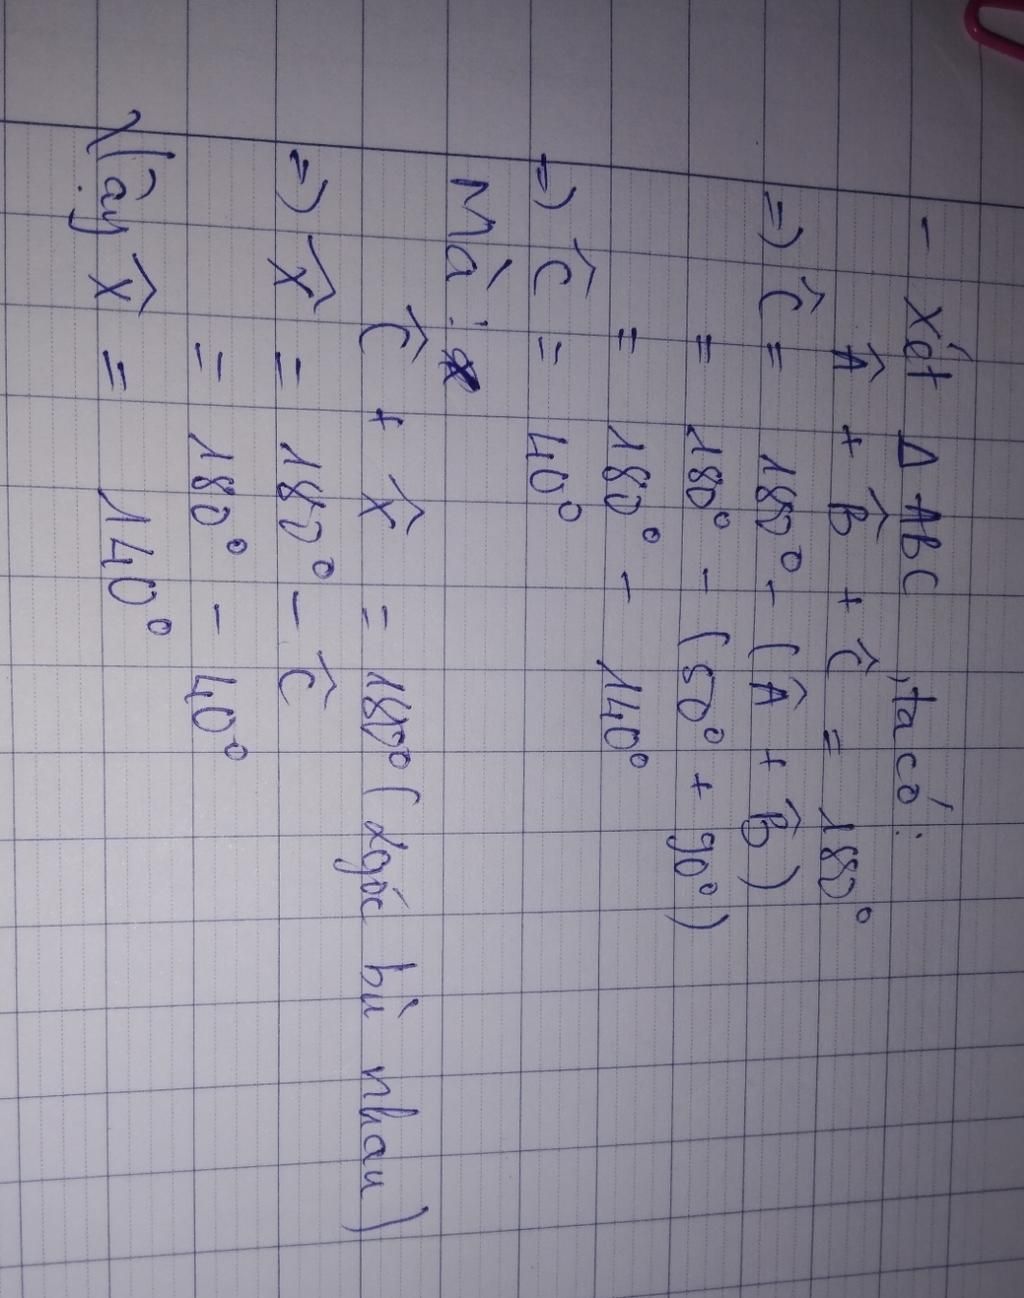 - Xét Δ ABC , ta có:
Â + B̂ + Ĉ = 180°
=) Ĉ = 180° - (Â + B̂)
= 180° - (50° + 90°)
= 180° - 140°
=) Ĉ = 40°
Mà :
Ĉ + x̂ = 180° (2 góc bù nhau)
=) x̂ = 180° - Ĉ
= 180° - 40°
Vậy x̂ = 140°